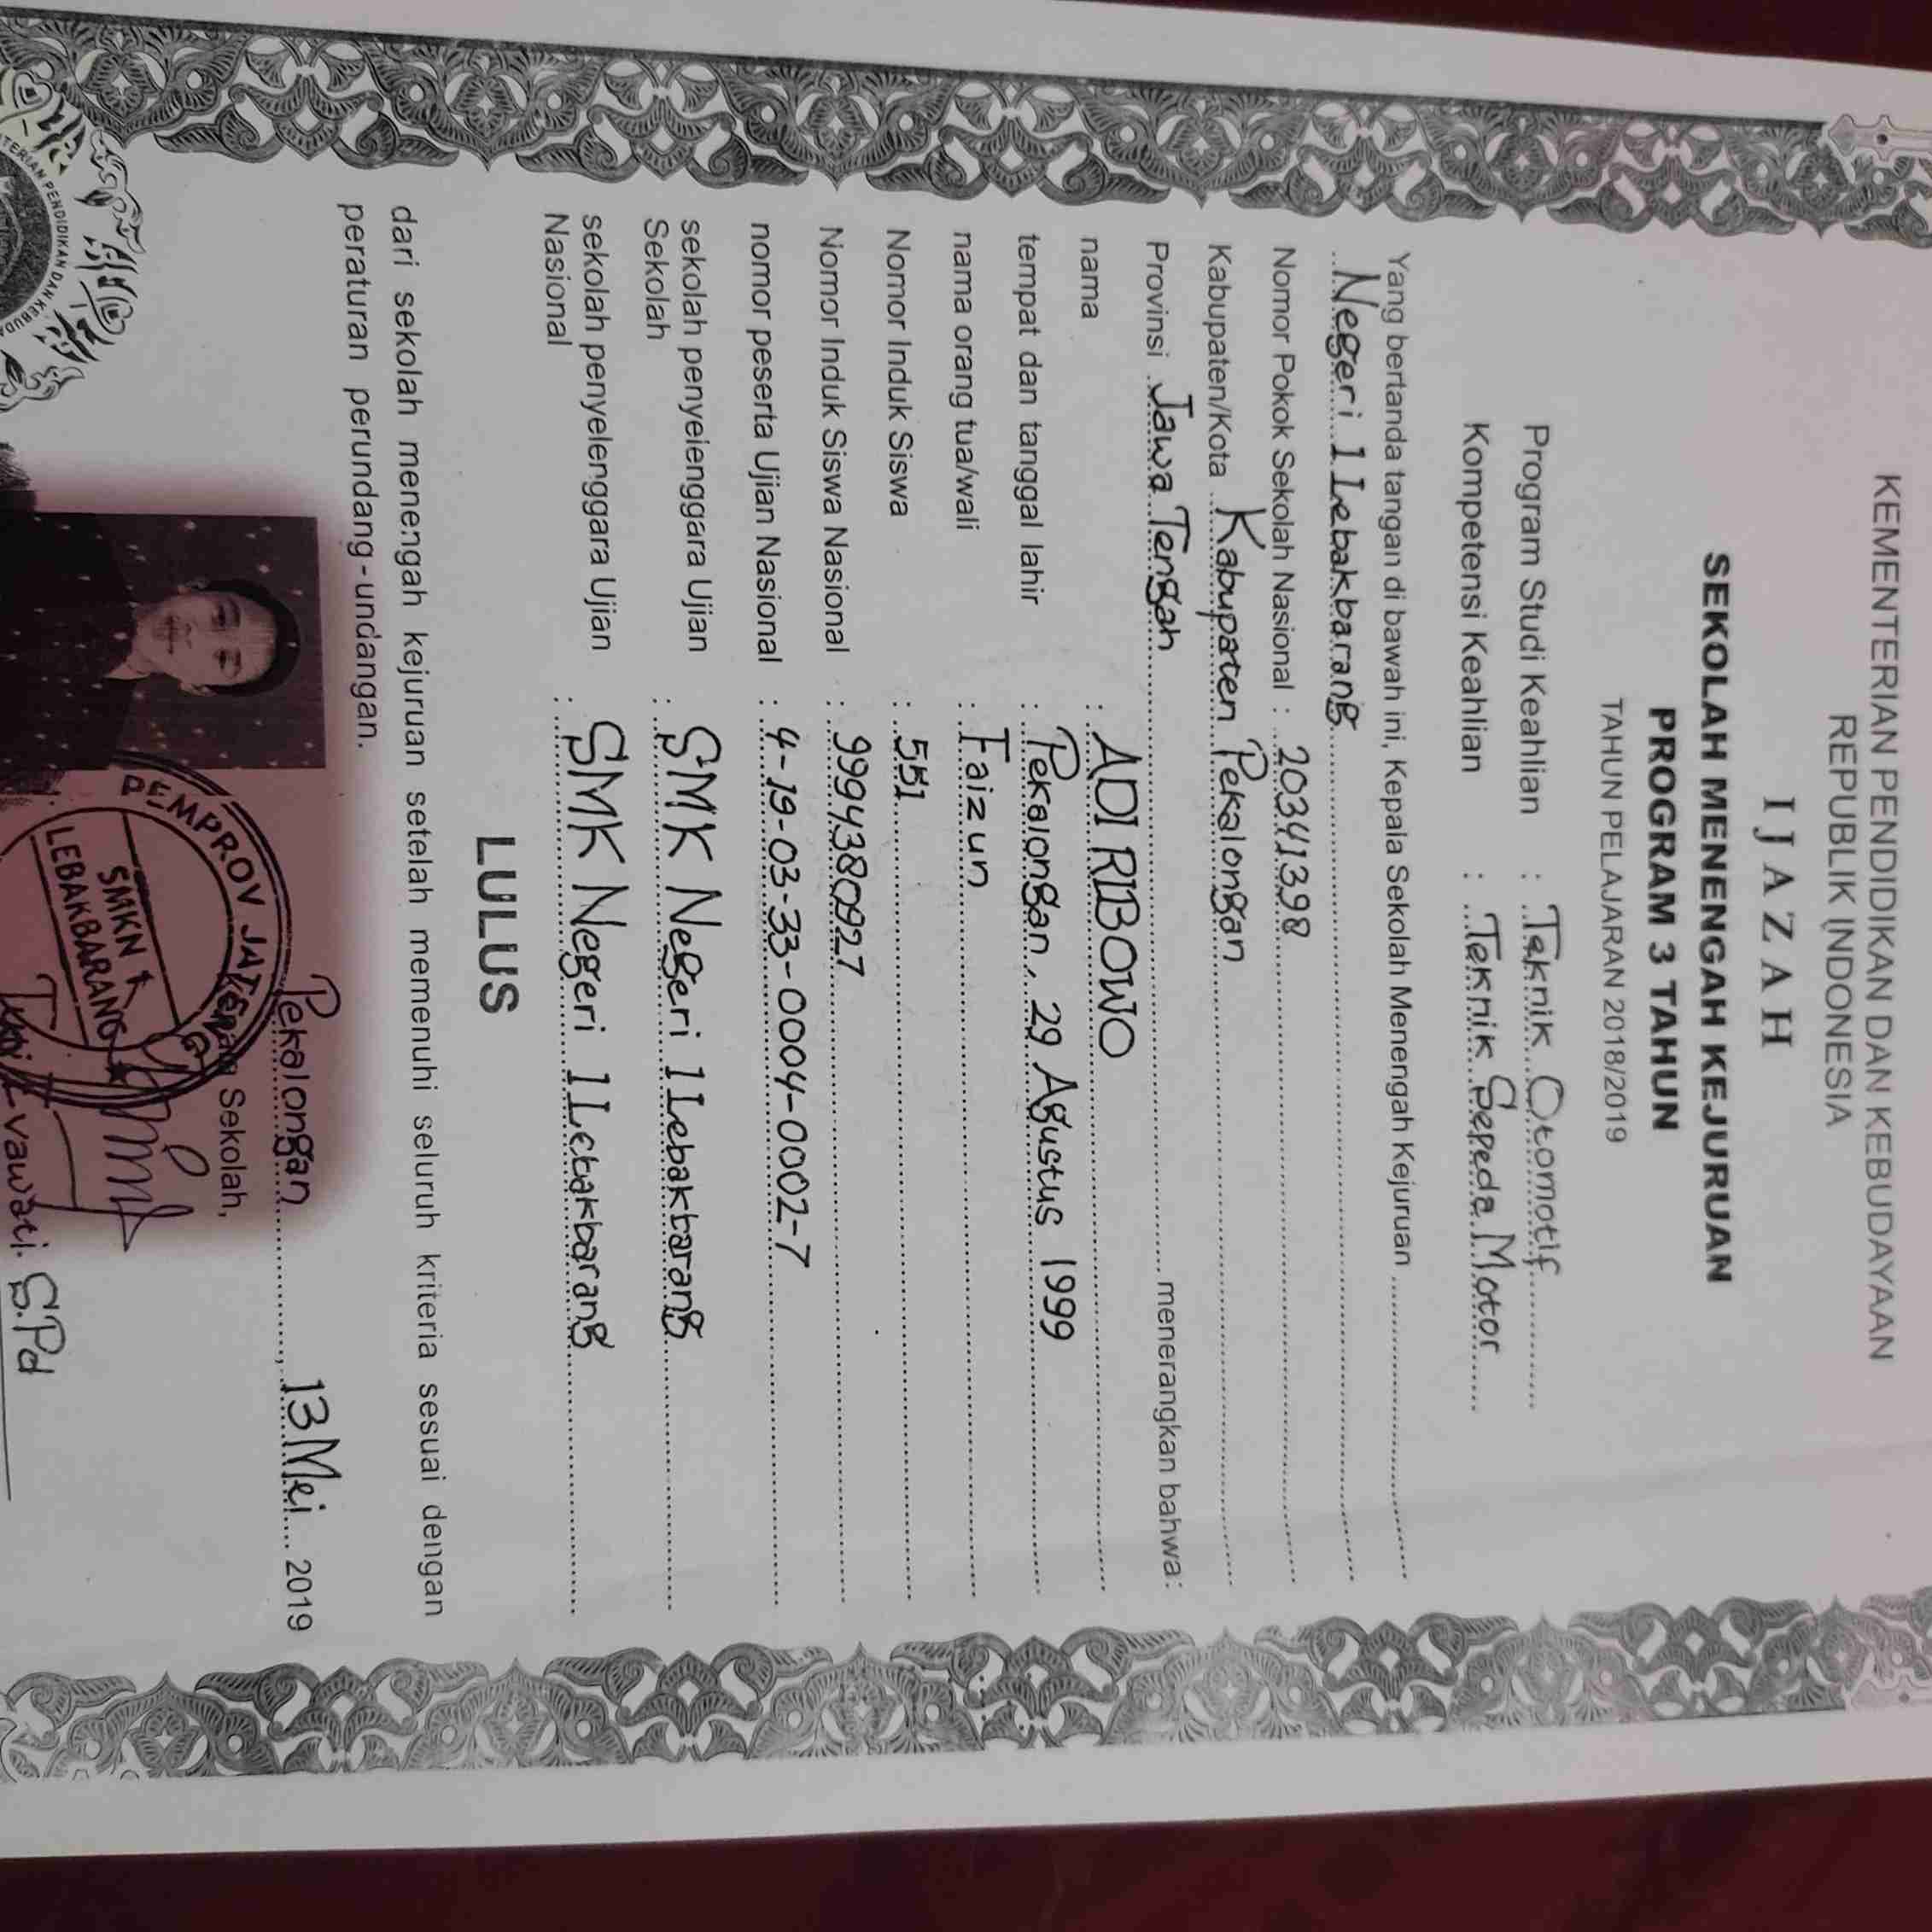 KEMENTERIAN PENDIDIKAN DAN KEBUDAYAAN
REPUBLIK INDONESIA
IJAZAH
SEKOLAH MENENGAH KEJURUAN
PROGRAM 3 TAHUN
TAHUN PELAJARAN 2018/2019
Program Studi Keahlian : Teknik Otomotif
Kompetensi Keahlian : Teknik Sepeda Motor
Yang bertanda tangan di bawah ini, Kepala Sekolah Menengah Kejuruan
Negeri 1 Lebakbarang
Nomor Pokok Sekolah Nasional : 20341398
Kabupaten/Kota Kabupaten Pekalongan
Provinsi Jawa Tengah menerangkan bahwa:
nama : ADI RIBOWO
tempat dan tanggal lahir : Pekalongan, 29 Agustus 1999
nama orang tua/wali : Faizun
Nomor Induk Siswa : 551
Nomor Induk Siswa Nasional : 9994380927
nomor peserta Ujian Nasional : 4-19-03-33-0004-0002-7
sekolah penyelenggara Ujian : SMK Negeri 1 Lebakbarang
Sekolah
sekolah penyelenggara Ujian : SMK Negeri 1 Lebakbarang
Nasional
LULUS
dari sekolah menengah kejuruan setelah memenuhi seluruh kriteria sesuai dengan
peraturan perundang-undangan.
Pekalongan, 13 Mei 2019
Kepala Sekolah,
PEMPROV JATENG
SMKN 1
LEBAKBARANG
S.Pd